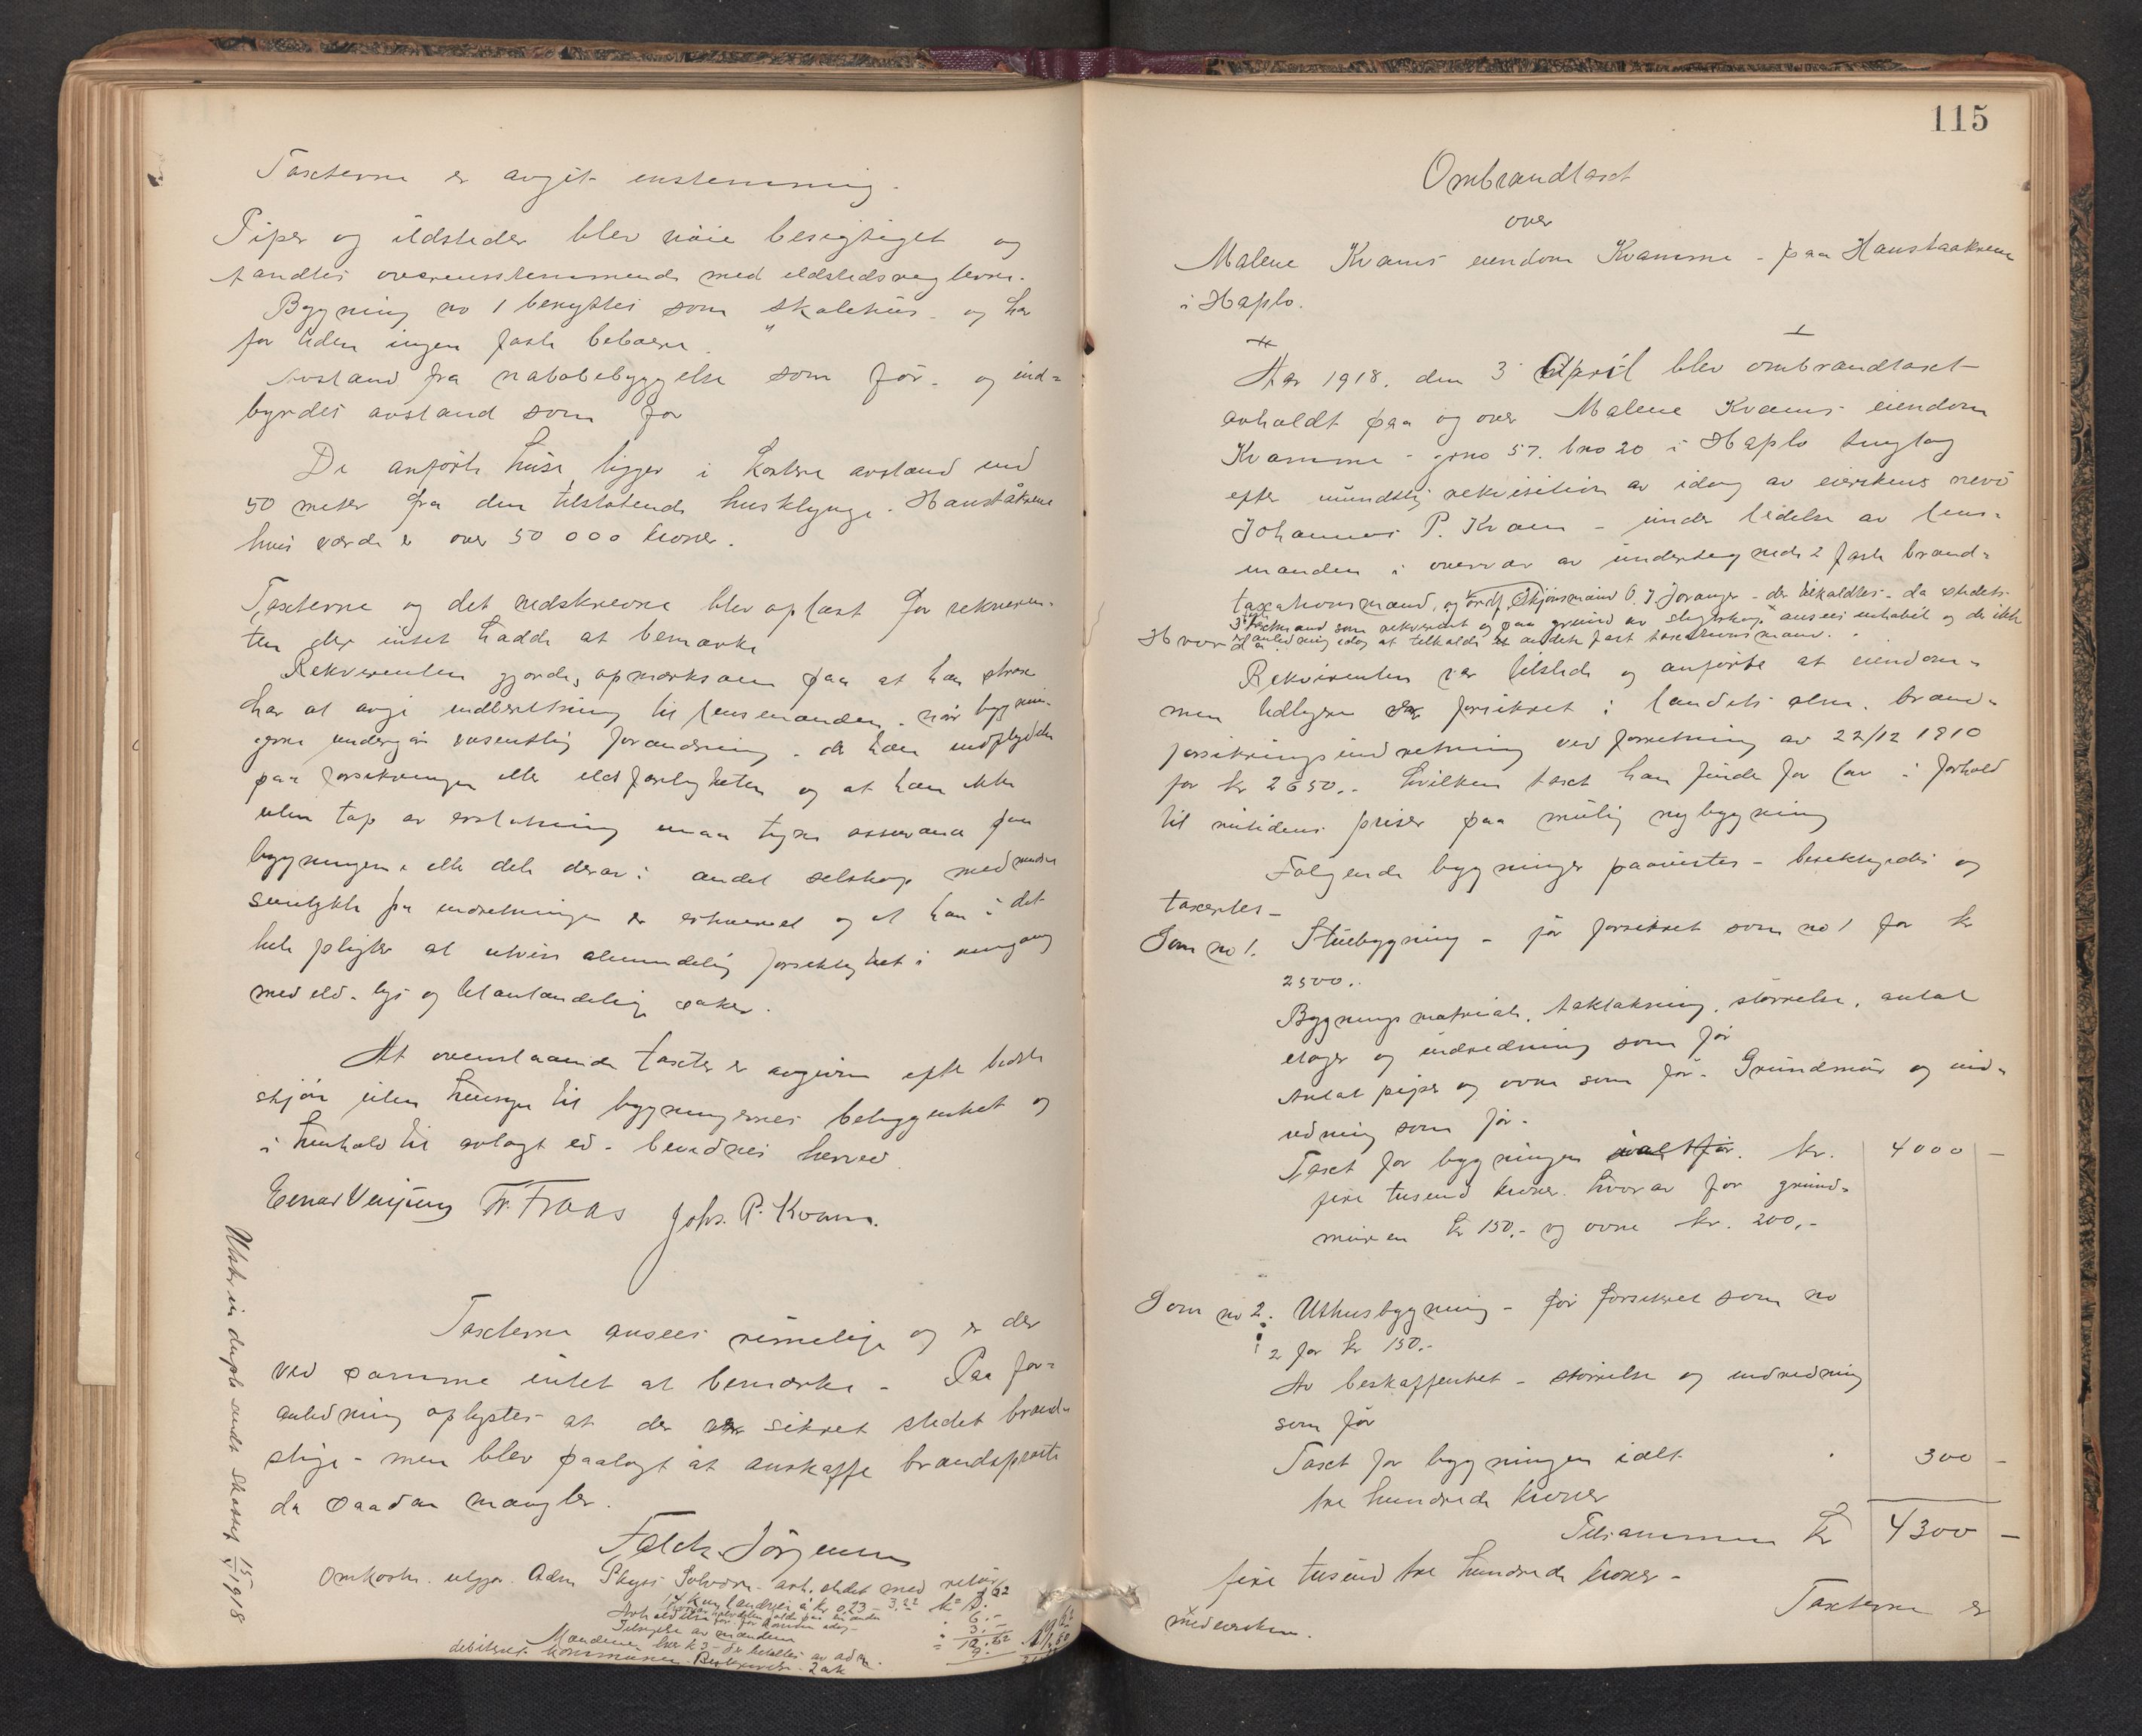 Taxterne er avgit enstemmig.
Piper og ildsteder blev nøie besigtiget og
fandtes overensstemmende med ildstedsreglerne.
Bygning no 1 benyttes som skolehus og har
for tiden ingen faste beboere
Avstand fra nabobebyggelse som før. og ind=
byrdes avstand som før
De anførte huse ligger i kortere avstand end
50 meter fra den tilstøtende husklynge. Hauståkrene
hvis værdi er over 50 000 kroner.
Taxterne og det nedskrevne blev oplæst for rekviren=
ten der intet hadde at bemærke
Rekvirenten gjordes opmærksom paa at han strax
har at avgi indberetning til lensmanden. når bygnin=
gene undergår væsentlig forandring. der har indflydelse
paa forsikringen eller ildsfarligheten og at han ikke
uten tap av erstatning maa tegne assurance paa
bygningene eller dele derav i andet selskap medmindre
samtykke fra indretningen er erhvervet og at han i det
hele pligter at utvise almindelig forsiktighet i omgang
med ild. lys og letantændelige saker.
At ovenstaaende taxter er avgivne efter bedste
skjøn uten hensyn til bygningernes beliggenhet og
i henhold til avlagt ed. bevidnes herved
Einar Venjum Fr. Fraas Johs. P. Kvam.
Taxterne ansees rimelige og er der
ved samme intet at bemærke - Paa for=
anledning oplystes at der er sikret stedet brand=
stige - men blev paalagt at anskaffe brandsprøite
da saadan mangler.
Falch. Jørgensen
Omkostn. utgjør. Adm Skyss Solvorn - ast. stedet med retur
17 km landvei à kr 0,23 - 3.22
Avholdelse for
Tilsigelse av mændene
Mændene hver k 3 - der betales av adm.
debiteret kommunen. 2 ark
Utskr in duplo sendt skattef 15/5 1918
115
Ombrandtaxt
over
Malene Kvams eiendom Kvamme - paa Haustaakrene
i Hafslo.
Aar 1918. den 3 April blev ombrandtaxt
avholdt paa og over Malene Kvams eiendom
Kvamme - gno 57. bno 20 i Hafslo tinglag
efter mundtlig rekvisition av idag av eierskens nevø
Johannes P. Kvam - under ledelse av lens=
manden i overvær av undertegnede 2 faste brand=
taxationsmænd, og Skjønsmand O. J. Joranger - der tilkaldtes - da stedets
3die som rekvirent og paa grund av slegtskap ansees inhabil og da ikke
var anledning idag at tilkalde et andet fast taxationsmand.
Rekvirenten var tilstede og anførte at eiendom=
men tidligere er forsikret i landets alm. brand=
forsikringsindretning ved forretning av 22/12 1910
for kr 2650.- hvilken taxt han finder for lav i forhold
til nutidens priser paa mulig nybygning
Følgende bygninger paavistes - besiktigedes og
taxertes -
Som no 1. Stuebygning - før forsikret som no 1 for kr
2500.-
Bygningsmateriale, taktækning, størrelse, antal
etager og indredning som før
Antal piper og ovne som før. Grundmur og ind=
redning som før.
Taxt for bygningen ialt før. kr. 4000 -
fire tusend kroner. hvorav for grund=
muren kr 150.- og ovne kr. 200,-
Som no 2. Uthusbygning - før forsikret som no
2 for kr 150.-
Av beskaffenhet - størrelse og indredning
som før
Taxt for bygningen ialt 300 -
tre hundrede kroner
Tilsammen kr 4300 -
fire tusind tre hundrede kroner -
Taxterne er